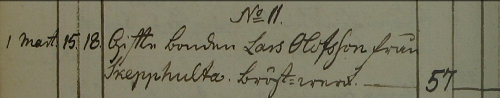 No 11.
1 Mart. 15. 18. Gifte bonden Lars Olofsson från
Skepphulta. Bröst=werk. 57